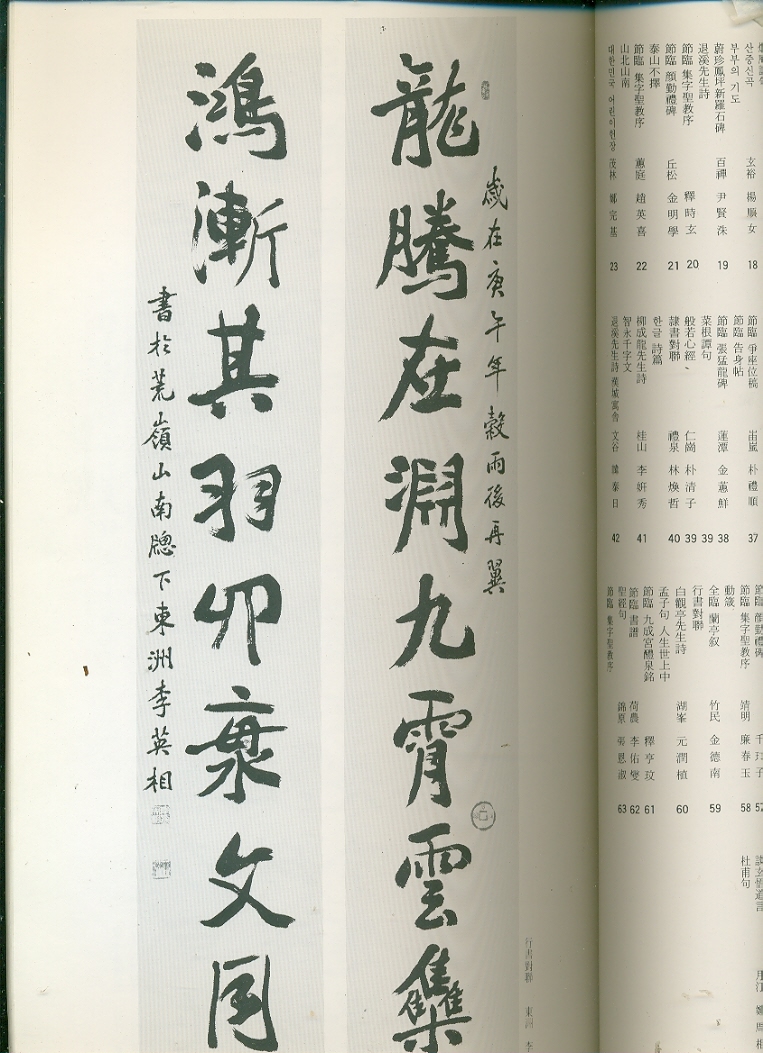 산중신곡 玄裕 18
부부의 기도
蔚珍鳳坪新羅石碑 百禪 尹賢洙 19
退溪先生詩
節臨 集字聖教序 釋時玄 20
節臨 顔勤禮碑 丘松 金明學 21
泰山不擇
節臨 集字聖教序 蕙庭 趙英喜 22
山北山南
대한민국 어린이헌장 茂林 鄭完基 23
節臨 爭座位稿 朴禮順 37
節臨 告身帖
節臨 張猛龍碑 蓮潭 金蕙鮮 38
菜根譚句 39
般若心經、 仁崗 朴清子 39
隸書對聯 禮泉 林煥哲 40
한글 詩篇
柳成龍先生詩 桂山 李姸秀 41
智永千字文
退溪先生詩 漢城寓舍 文谷 泰日 42
節臨 顔勤禮碑 52
節臨 集字聖教序 靖明 廉春玉 58
動箴
全臨 蘭亭叙 竹民 金德南 59
行書對聯
白觀亭先生詩 湖峯 元潤植 60
孟子句 人生世上中
節臨 九成宮醴泉銘 釋亨玟 61
節臨 書譜 荷農 李佑燮 62
聖經句 錦原 恩淑 63
節臨 集字聖教序
杜甫句
歲在庚午年穀雨後再翼
龍騰在淵九霄雲集
鴻漸其羽 衆文
書於荒嶺山南牕下東洲李英相
行書對聯 東洲 李